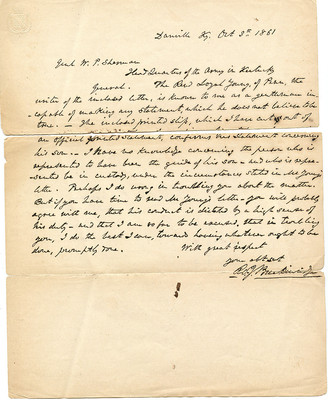 Danville Ky. Oct 3d 1861
Genl W. T. Sherman
Head Quarters of the Army in Kentucky
General. The Revd Loyal Young, of Penn, the
writer of the enclosed letter, is known to me as a gentleman in-
capable of making any statement which he does not believe to be
true. — The inclosed printed slip, which I have cut out of
an official printed statement, confirms his statement concerning
his son. — I have no knowledge concerning the person who is
represented to have been the guide of his son — and who is repre-
sented to be in custody, under the circumstances stated in Mr Young's
letter. Perhaps I do wrong in troubling you about the matter.
But if you have time to read Mr Young's letter, you will probably
agree with me, that his conduct is dictated by a high sense of
his duty — and that I am so far to be excused, that in troubling
you, I do the best I can, towards having whatever ought to be
done, promptly done.
With great respect
your obt svt